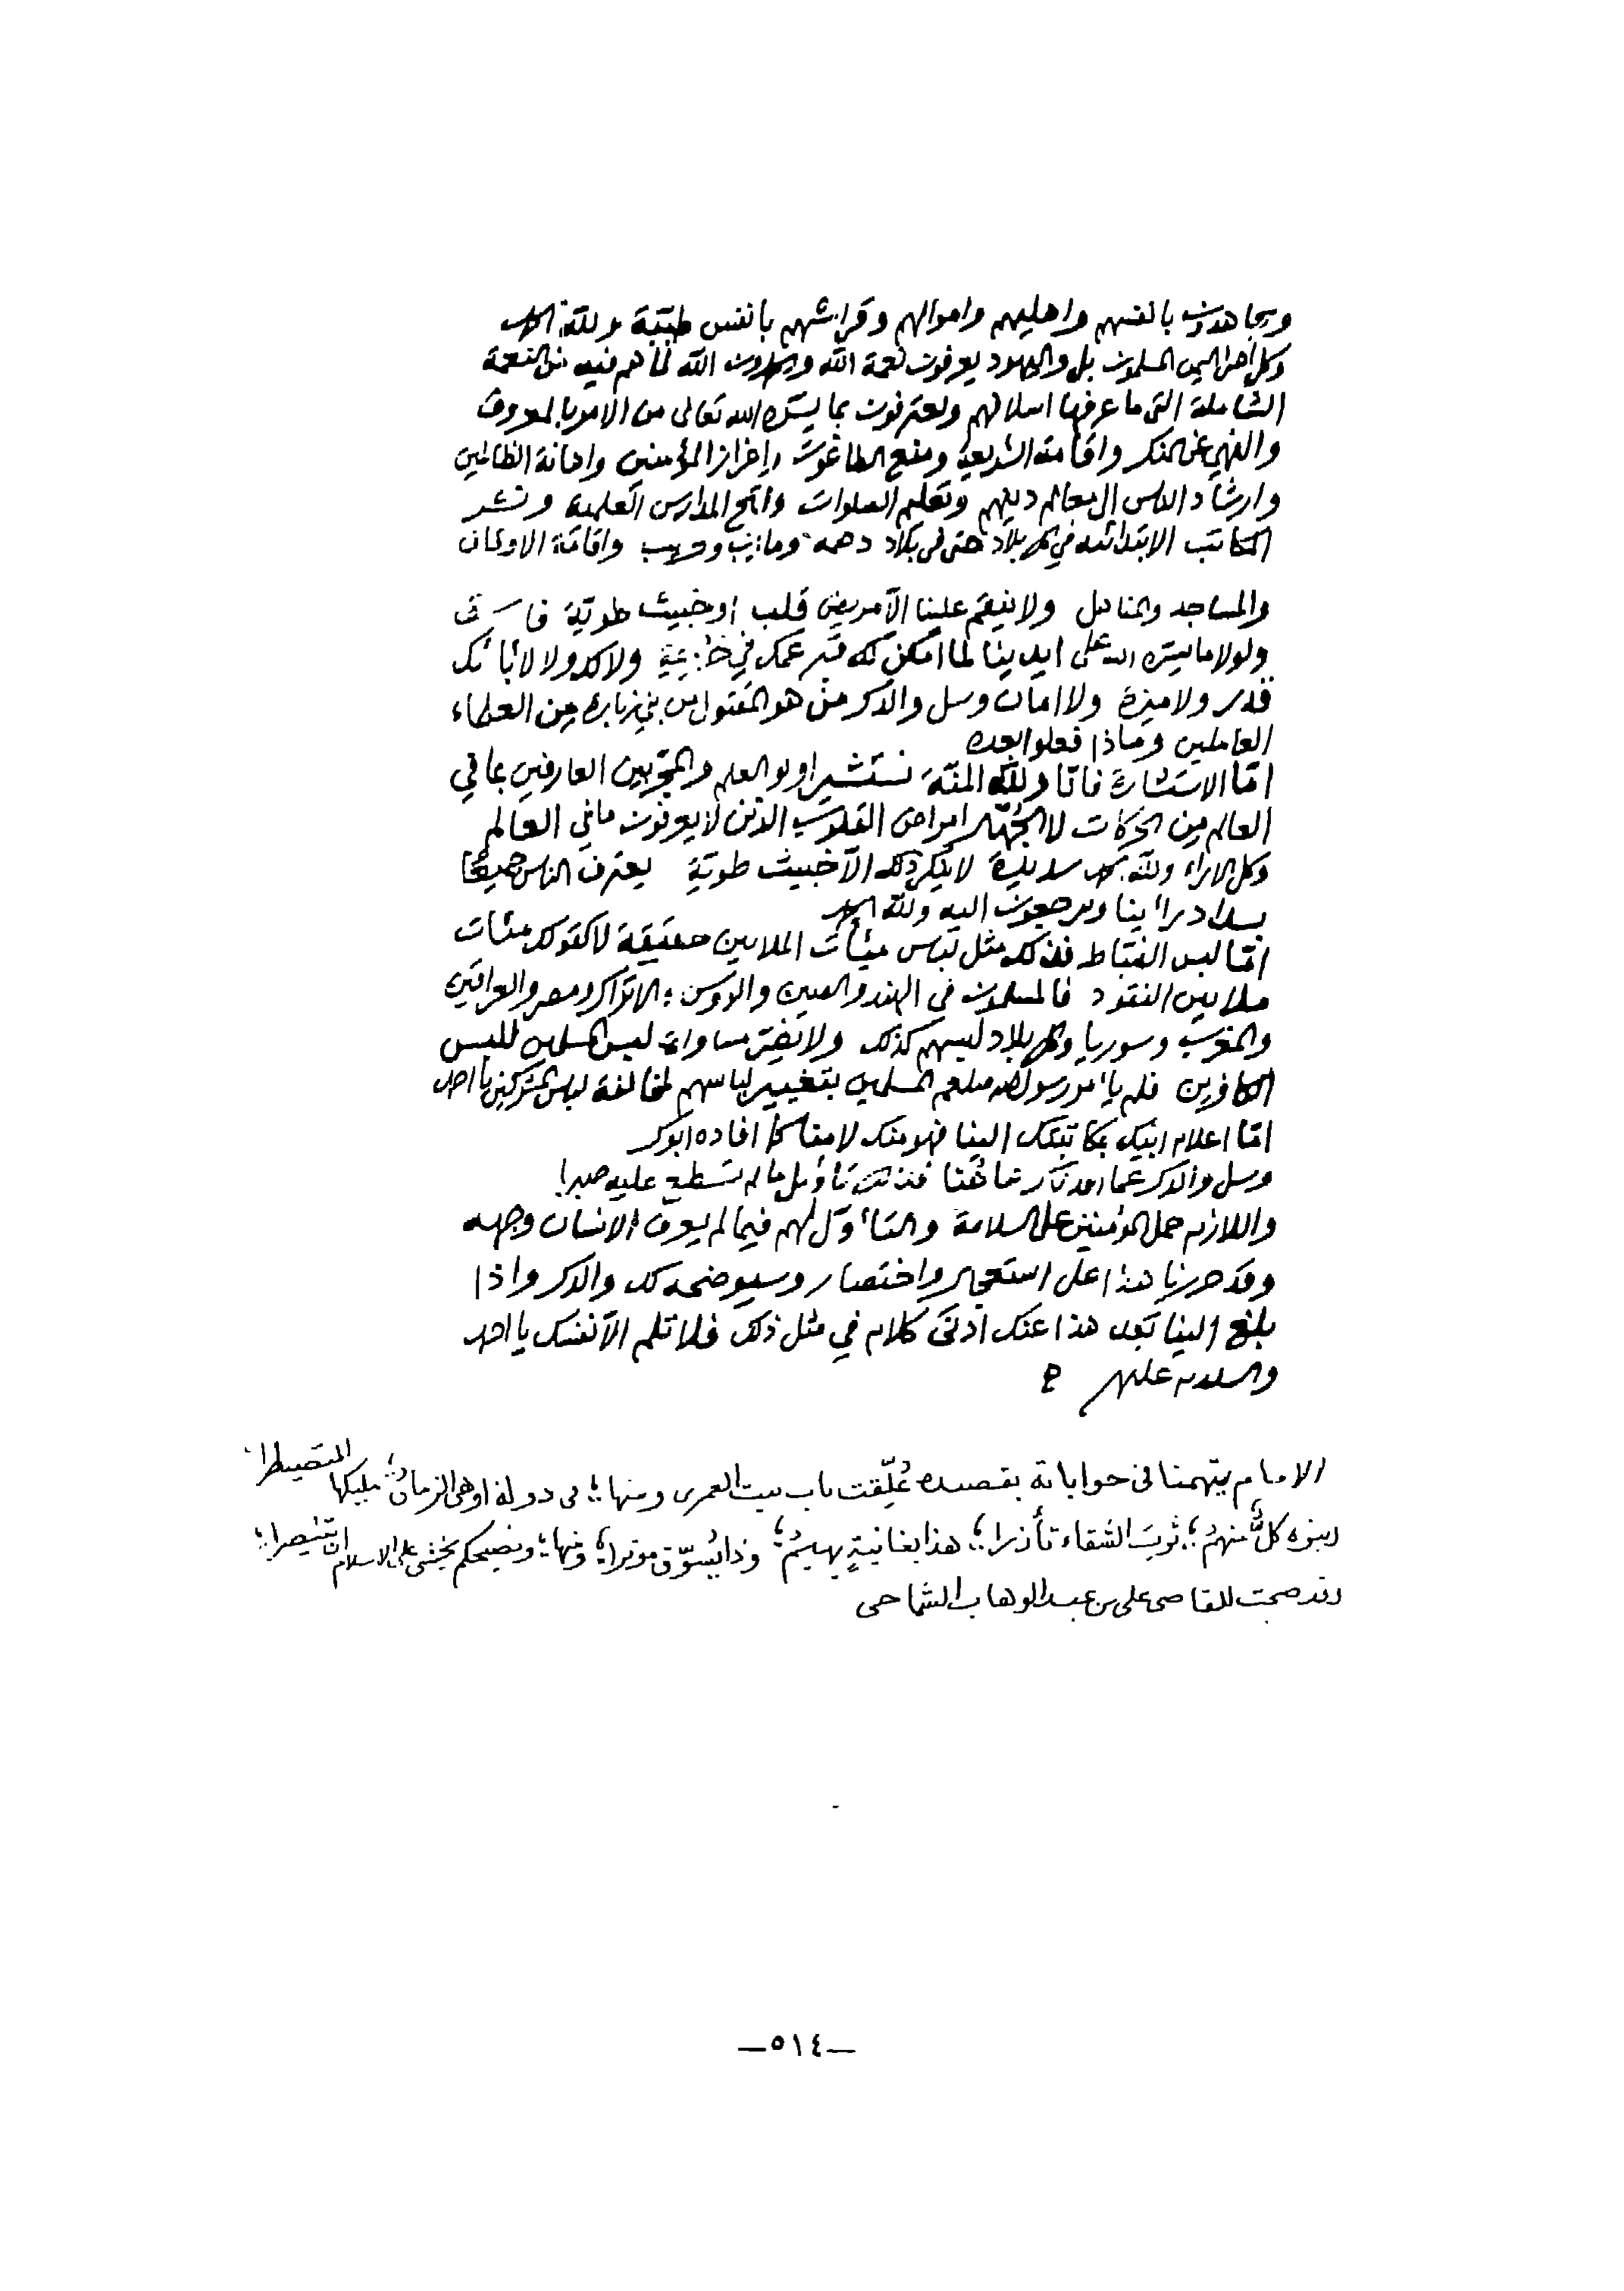 ويجاهدون بانفسهم واهليهم واموالهم وقراشهم بانفس طيبة ولله الحمد
وكل أهل اليمن المسلمون بل واليهود يعرفون نعمة الله ويحمدون الله لما هم فيه من النعمة
الشاملة التي ما عرفها اسلافهم ويعترفون بما يسره الله تعالى من الامر بالمعروف
والنهي عن المنكر واقامة الشريعة ومنع الطاغوت وإعزاز المؤمنين واهانة الظالمين
وارشاد الناس الى معالم دينهم وتعليم الصلوات وفتح المدارس العلمية ونشر
المكاتب الابتدائية في كل بلاد حتى في بلاد دهمة وماريب وحريب واقامة الاركان
والمساجد والمناهل ولا ينقم علينا الا مريض قلب او خبيث طوية فاسق
ولولا ما يسره الله على ايدينا لما امكن لك قبر عمك في خزيمة ولا لك ولا لابائك
قدر ولا ميزة ولا امان وسل والدك من هو المقتول من بني زبارة من العلماء
العاملين وماذا فعلوا بعده
امّا الاستشارة فانّا ولله المنّة نستشير اولو العلم والمجربين العارفين بما في
العالم من الحركات لا الجُهّال امراض القلوب الذين لا يعرفون ما في العالم
وكل الاراء ولله الحمد سديدة لا ينكر ذلك الا خبيث طويّةٍ يعترف الناس جميعًا
بسداد رأينا ويرجعون اليه ولله الحمد
امّا لبس الضباط فذلك مثل لباس ميئات الملايين حقيقة لا كقولك مئات
ملايين النقود فالمسلمون في الهند والصين والروس والاتراك ومصر والعراقين
والمغرب وسوريا وكل بلاد لبسهم كذلك ولا يضر مساواة لبس المسلمين للبس
الكافرين فلم يأمر رسول الله صلعم المسلمين بتغيير لباسهم لمخالفة لباس المشركين يا احمد
امّا اعلام ابنيك بمكاتبتك الينا فهو منك لا منا كما افاده ابوك
وسل والدك عما فذلك تأويل ما لم تسطع عليه صبرا!
واللازم حمل المؤمنين على السلامة والتأوّل لهم فيما لم يعرف الانسان وجهه
وقد حررنا هذا على استعجال واختصار وسيوضحه لك والدك واذا
بلغ الينا بعد هذا عنك ادنى كلام في مثل ذلك فلا تلم الا نفسك يا احمد
والسلام عليكم
الامام يتهمنا في جواباته بقصيده عُلِّقت باب بيت العمري ومنها؛ في دولة اوهى الزمان مليكها المتصيطرا
وبنوه كلٌّ منهمُ؛ ثوبَ الشقاء تأزرا؛ هذا بغانيةٍ يهيمُ؛ وذا يُسوّق موترا؛ ومنها؛ ونصيحكم يخشى على الاسلام ان تتنصرا؛
وقد صحت للقاضي علي بن عبد الوهاب الشماحي
—٥١٤—